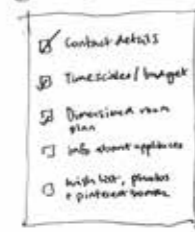 Contact details
Timescales / budget
Dimensioned room
plan
info about appliances
wish list, photos
+ pinterest boards